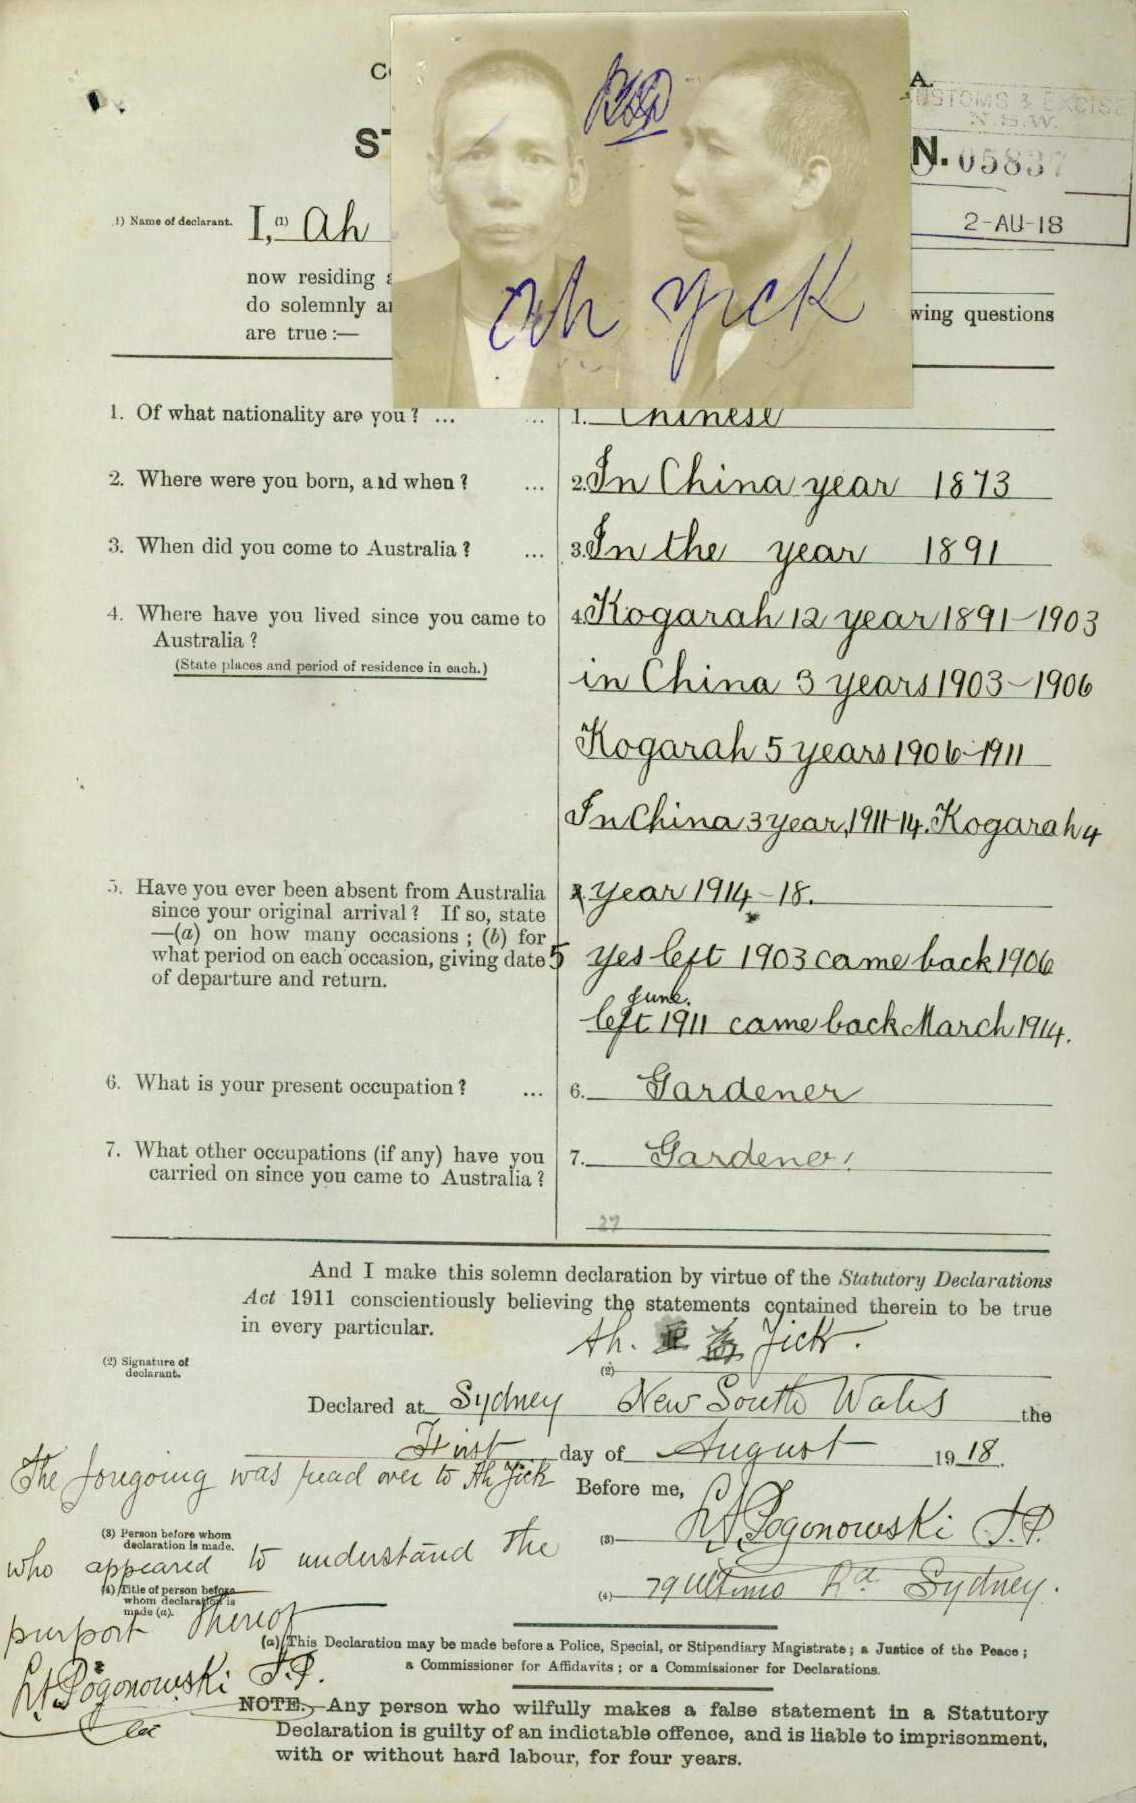 A.
CUSTOMS & EXCISE
N.S.W.
N. 05837
2-AU-18
1) Name of declarant. I, (1) Ah
now residing
do solemnly
wing questions
are true:—
Ah Yick
1. Of what nationality are you? ... ... 1. Chinese
2. Where were you born, and when? ... 2. In China year 1873
3. When did you come to Australia? ... 3. In the year 1891
4. Where have you lived since you came to 4. Kogarah 12 year 1891-1903
Australia?
(State places and period of residence in each.)
in China 3 years 1903-1906
Kogarah 5 years 1906-1911
In China 3 year, 1911-14. Kogarah 4
year 1914-18.
5. Have you ever been absent from Australia
since your original arrival? If so, state
—(a) on how many occasions; (b) for
what period on each occasion, giving date 5 yes left 1903 came back 1906
of departure and return.
June.
left 1911 came back March 1914.
6. What is your present occupation? ... 6. Gardener
7. What other occupations (if any) have you 7. Gardener
carried on since you came to Australia?
27
And I make this solemn declaration by virtue of the Statutory Declarations
Act 1911 conscientiously believing the statements contained therein to be true
in every particular.
Ah. 益 Yick.
(2) Signature of (2)
declarant.
Declared at Sydney New South Wales the
First day of August 1918.
The foregoing was read over to Ah Yick
who appeared to understand the
purport thereof
Pogonowski J.P.
Before me,
(3) Person before whom (3) Pogonowski J.P.
declaration is made.
(4) Title of person before (4) 79 Ultimo Rd Sydney.
whom declaration is
made (a).
(a) This Declaration may be made before a Police, Special, or Stipendiary Magistrate; a Justice of the Peace;
a Commissioner for Affidavits; or a Commissioner for Declarations.
NOTE.—Any person who wilfully makes a false statement in a Statutory
Declaration is guilty of an indictable offence, and is liable to imprisonment,
with or without hard labour, for four years.